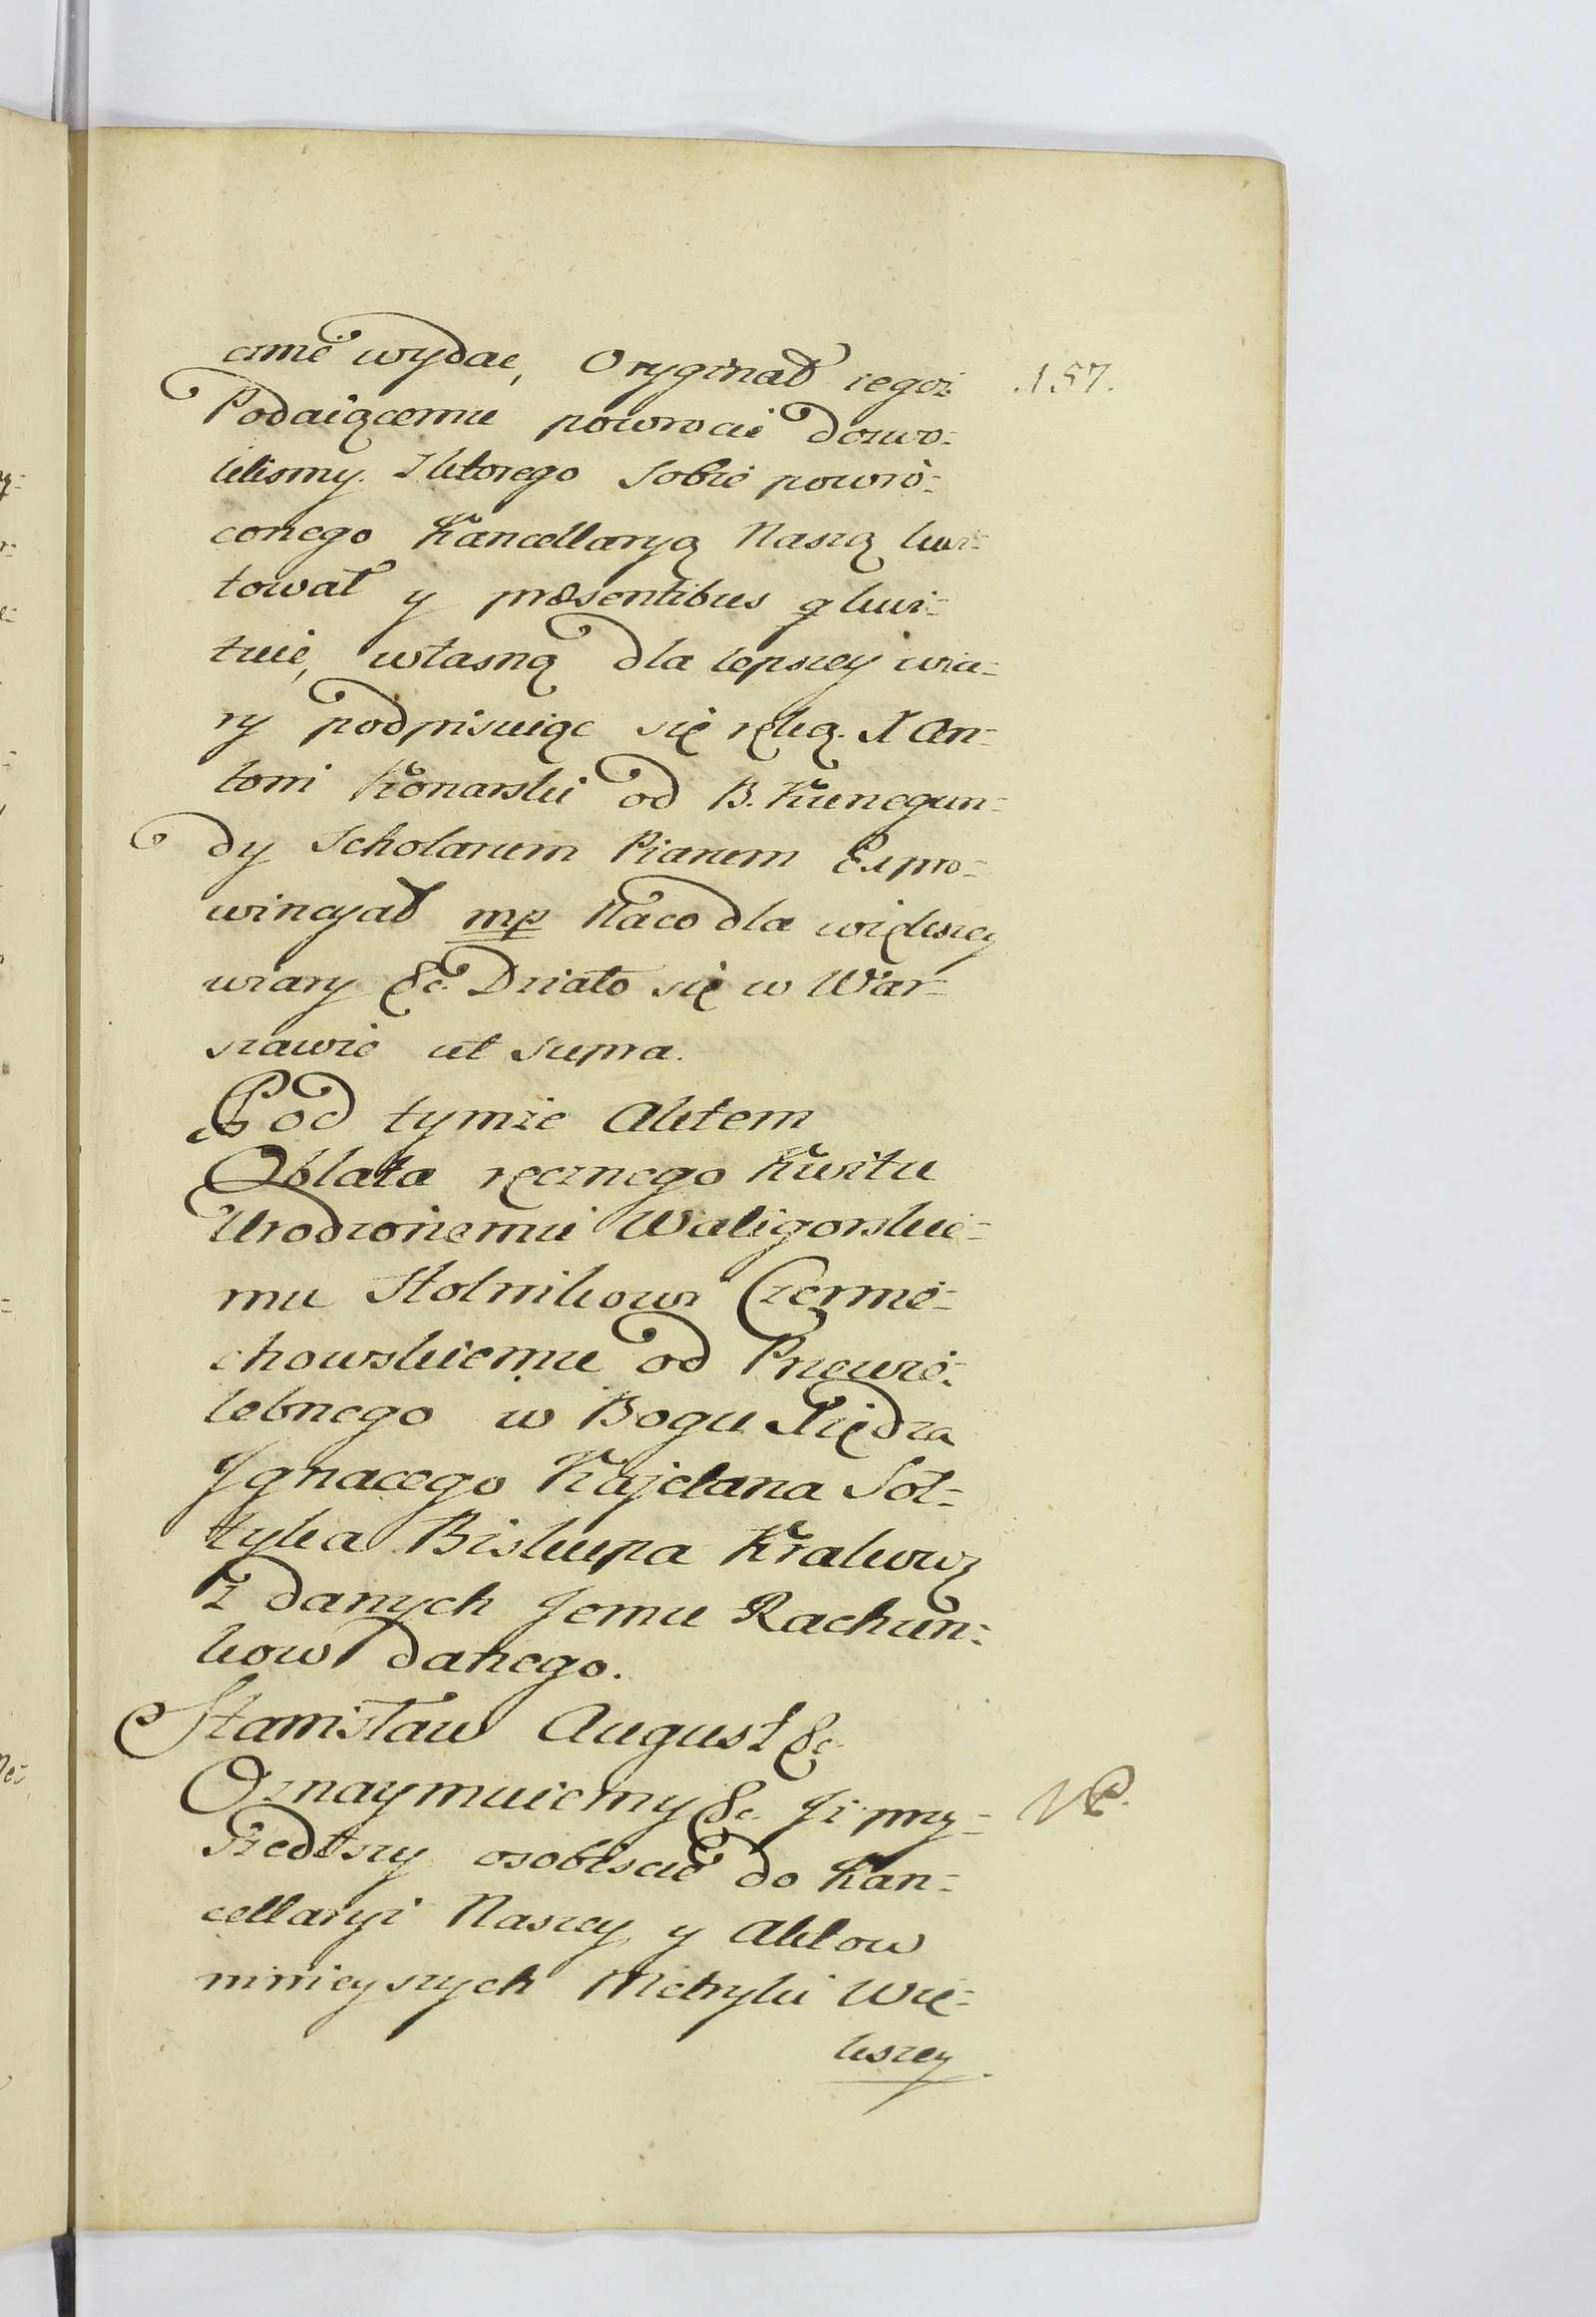 cznie wydać, Oryginał iegoż
157.
Podaiącemu powrocić dozwo=
lilismy. Z ktorego sobie powró=
conego Kancellaryą Naszą kwi=
tował y præsentibus q kwi=
tuie, własną dla lepszey wia=
ry podpisuiąc się ręką. X An=
toni Konarski od B. Kunegun=
dy Scholarum Piarum Expro=
wincyał mp Na co dla większey
wiary &c. Działo się w War=
szawie ut supra.
Pod tymże Aktem
Oblata ręcznego Kwitu
Urodzonemu Waligorskie=
mu Stolnikowi Czernie=
chowskiemu od Przewie=
lebnego w Bogu Xiędza
Ignacego Kajetana Soł=
tyka Biskupa Krakowg
z danych Jemu Rachun=
kow danego.
Stanisław August &c
Oznaymuiemy &c. Iż przy=
szedłszy osobiscie do Kan=
cellaryi Naszey y Aktow
ninieyszych Metryki Wię=
kszey